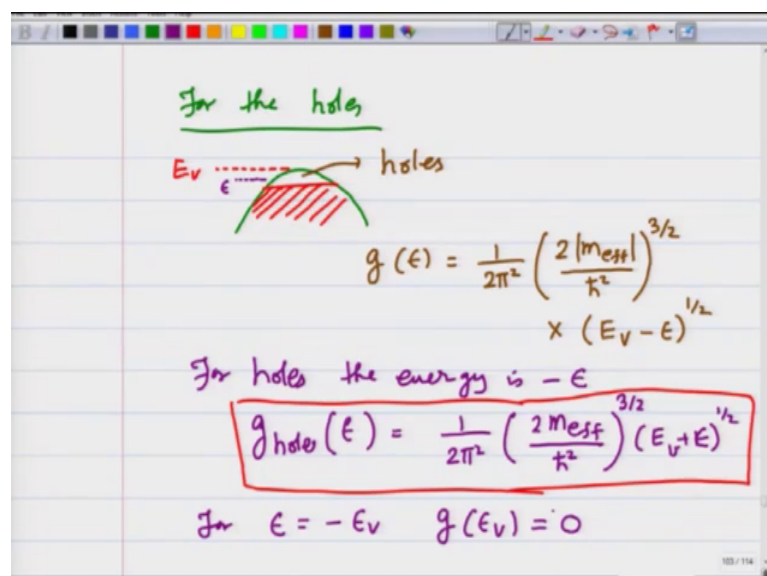 For the holes
E_V
ε
holes
g(ε) = 1/2π² (2|m_eff|/ħ²)^3/2
× (E_V − ε)^1/2
For holes the energy is − ε
g_holes(ε) = 1/2π² (2 m_eff/ħ²)^3/2 (E_V + ε)^1/2
For ε = − ε_V g(ε_V) = 0
103 / 114